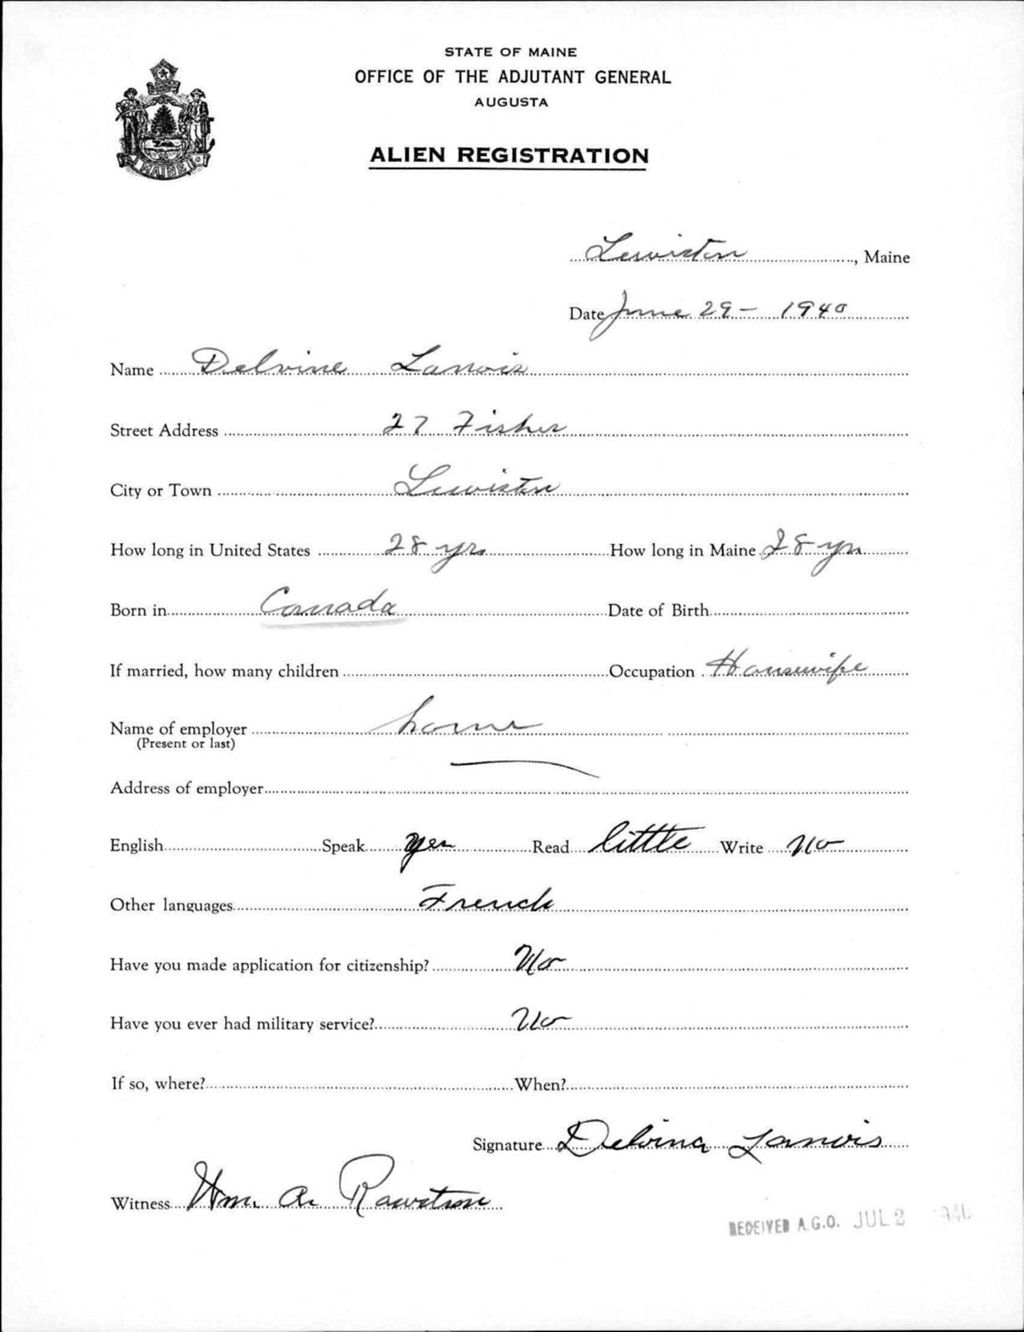 STATE OF MAINE
OFFICE OF THE ADJUTANT GENERAL
AUGUSTA
ALIEN REGISTRATION
Lewiston, Maine
Date June 29 - 1940
Name Delvine Lanois
Street Address 27 Fisher
City or Town Lewiston
How long in United States 28 yrs How long in Maine 28 yrs
Born in Canada Date of Birth
If married, how many children Occupation Housewife
Name of employer home
(Present or last)
Address of employer
English Speak yes Read little Write No
Other languages French
Have you made application for citizenship? No
Have you ever had military service? No
If so, where? When?
Signature Delvina Lanois
Witness Wm. A. Rawstron
RECEIVED A.G.O. JUL 2 1940
MAINE